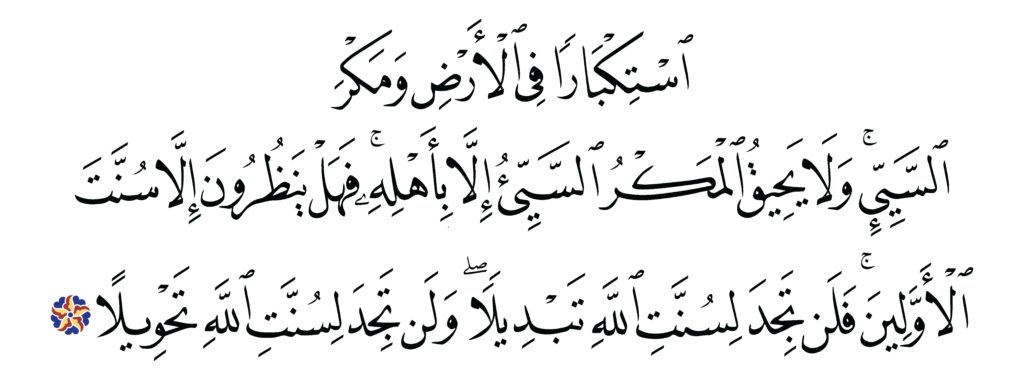 ٱسۡتِكۡبَارٗا فِي ٱلۡأَرۡضِ وَمَكۡرَ
ٱلسَّيِّيِٕۚ وَلَا يَحِيقُ ٱلۡمَكۡرُ ٱلسَّيِّئُ إِلَّا بِأَهۡلِهِۦۚ فَهَلۡ يَنظُرُونَ إِلَّا سُنَّتَ
ٱلۡأَوَّلِينَۚ فَلَن تَجِدَ لِسُنَّتِ ٱللَّهِ تَبۡدِيلٗاۖ وَلَن تَجِدَ لِسُنَّتِ ٱللَّهِ تَحۡوِيلًا